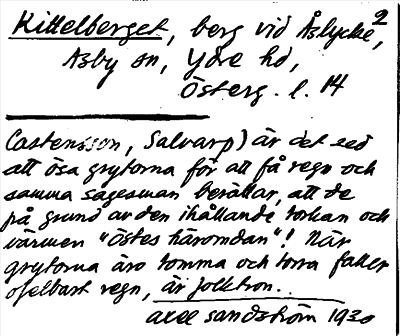 2
Kittelberget, berg vid Åslycke,
Asby sn, Ydre hd,
Österg. l. 14
Castensson, Salvarp) är det sed
att ösa grytorna för att få regn och
samma sagesman berättar, att de
på grund av den ihållande torkan och
värmen "östes häromdan"! När
grytorna äro tomma och torra faller
ofelbart regn, är folktron..
Axel Sandström 1930